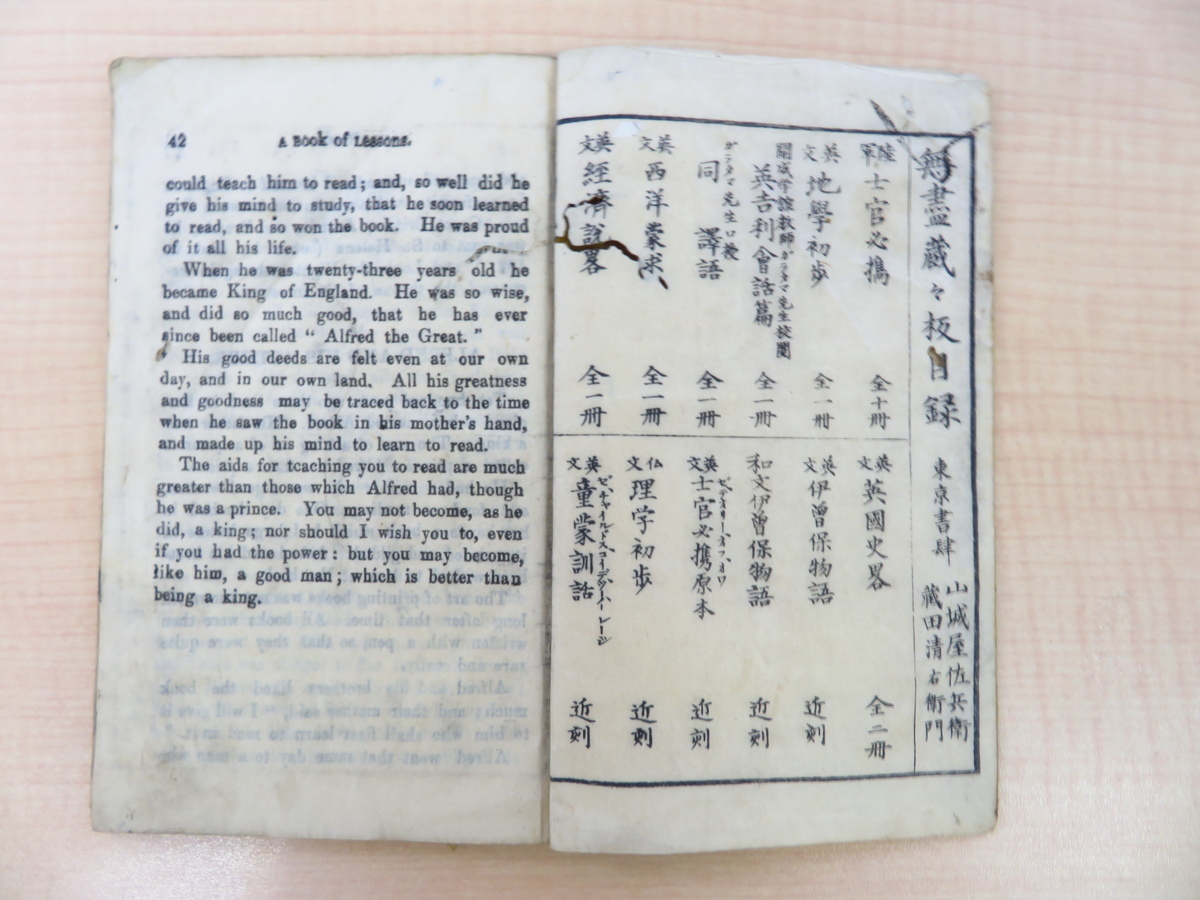 42
A Book of Lessons.
could teach him to read; and, so well did he
give his mind to study, that he soon learned
to read, and so won the book. He was proud
of it all his life.
When he was twenty-three years old he
became King of England. He was so wise,
and did so much good, that he has ever
since been called “ Alfred the Great.”
His good deeds are felt even at our own
day, and in our own land. All his greatness
and goodness may be traced back to the time
when he saw the book in his mother's hand,
and made up his mind to learn to read.
The aids for tcaching you to read are much
greater than those which Alfred had, though
he was a prince. You may not become, as he
did, a king; nor should I wish you to, even
if you had the power: but you may become,
like him, a good man; which is better than
being a king.
無盡蔵々板目録 東京書肆 山城屋佐兵衛
蔵田清右衛門
陸軍士官必携 全十冊
英文地學初歩 全一冊
開成学校教師ガラタマ先生校閲
英吉利會話篇 全一冊
ガラタマ先生口授
同譯語 全一冊
英文西洋蒙求 全一冊
英文経済説畧 全一冊
英文英國史畧 全二冊
英文伊曽保物語 近刻
和文伊曽保物語 近刻
英文士官必携原本 近刻
仏文理学初歩 近刻
英文童蒙訓話 近刻